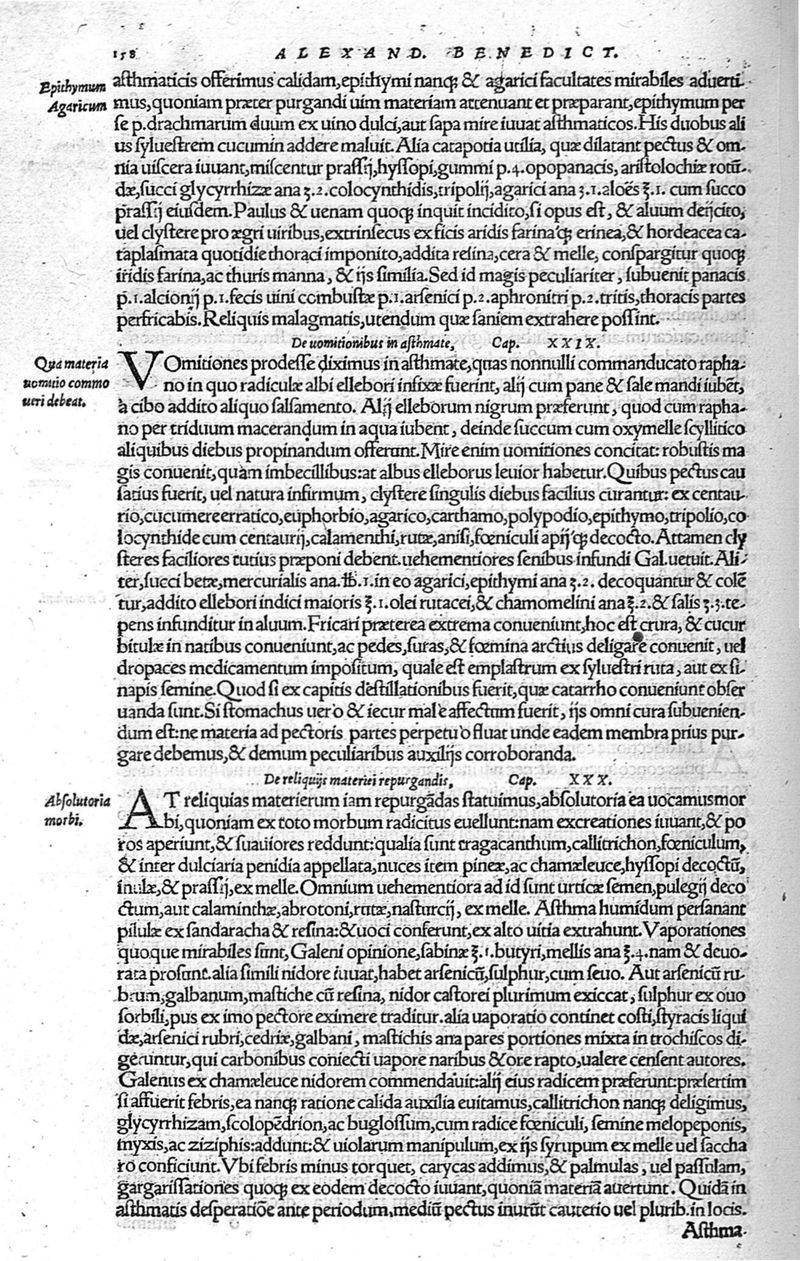 158 ALEXAND. BENEDICT.
Epithymum
Agaricum
aſthmaticis offerimus calidam, epithymi nanq; & agarici facultates mirabiles aduerti-
mus, quoniam præter purgandi uim materiam attenuant et præparant, epithymum per
ſe p. drachmarum duum ex uino dulci, aut ſapa mire iuuat aſthmaticos. His duobus ali
us ſylueſtrem cucumin addere maluit. Alia catapotia utilia, quæ dilatant pectus & om-
nia uiſcera iuuant, miſcentur praſsij, hyſſopi, gummi p. 4. opopanacis, ariſtolochiæ rotũ-
dæ, ſucci glycyrrhizæ ana ʒ. 2. colocynthidis, tripolij, agarici ana ʒ. 1. aloës ℥. 1. cum ſucco
praſsij eiuſdem. Paulus & uenam quoq; inquit incidito, ſi opus eſt, & aluum deijcito,
uel clyſtere pro ægri uiribus, extrinſecus ex ficis aridis farina'q; erinea, & hordeacea ca-
taplaſmata quotidie thoraci imponito, addita reſina, cera & melle, conſpargitur quoq;
iridis farina, ac thuris manna, & ijs ſimilia. Sed id magis peculiariter, ſubuenit panacis
p. 1. alcionij p. 1. fecis uini combuſtæ p. 1. arſenici p. 2. aphronitri p. 2. tritis, thoracis partes
perfricabis. Reliquis malagmatis, utendum quæ ſaniem extrahere poſſint.
De uomitionibus in aſthmate, Cap. XXIX.
Qua materia
uomitio commo
ueri debeat.
VOmitiones prodeſſe diximus in aſthmate, quas nonnulli commanducato rapha-
no in quo radiculæ albi ellebori infixæ fuerint, alij cum pane & ſale mandi iubẽt,
à cibo addito aliquo ſalſamento. Alij elleborum nigrum præferunt, quod cum rapha-
no per triduum macerandum in aqua iubent, deinde ſuccum cum oxymelle ſcyllitico
aliquibus diebus propinandum offerunt. Mire enim uomitiones concitat: robuſtis ma
gis conuenit, quàm imbecillibus: at albus elleborus leuior habetur. Quibus pectus cau
ſatius fuerit, uel natura infirmum, clyſtere ſingulis diebus facilius curantur: ex centau-
rio, cucumere erratico, euphorbio, agarico, carthamo, polypodio, epithymo, tripolio, co
locynthide cum centaurij, calamenthi, rutæ, aniſi, fœniculi apij'q; decocto. Attamen cly
ſteres faciliores tutius præponi debent. uehementiores ſenibus infundi Gal. uetuit. Ali-
ter, ſucci betæ, mercurialis ana. ℔. 1. in eo agarici, epithymi ana ʒ. 2. decoquantur & colẽ
tur, addito ellebori indici maioris ℥. 1. olei rutacei, & chamomelini ana ℥. 2. & ſalis ʒ. 3. te-
pens infunditur in aluum. Fricari præterea extrema conueniunt, hoc eſt crura, & cucur
bitulæ in natibus conueniunt, ac pedes, ſuras, & fœmina arctius deligare conuenit, uel
dropaces medicamentum impoſitum, quale eſt emplaſtrum ex ſylueſtri ruta, aut ex ſi-
napis ſemine. Quod ſi ex capitis deſtillationibus fuerit, quæ catarrho conueniunt obſer
uanda ſunt. Si ſtomachus uerò & iecur malè affectum fuerit, ijs omni cura ſubuenien-
dum eſt: ne materia ad pectoris partes perpetuò fluat unde eadem membra prius pur-
gare debemus, & demum peculiaribus auxilijs corroboranda.
De reliquijs materiei repurgandis, Cap. XXX.
Abſolutoria
morbi.
AT reliquias materierum iam repurgãdas ſtatuimus, abſolutoria ea uocamus mor
bi, quoniam ex toto morbum radicitus euellunt: nam excreationes iuuant, & po
ros aperiunt, & ſuauiores reddunt: qualia ſunt tragacanthum, callitrichon, fœniculum,
& inter dulciaria penidia appellata, nuces item pineæ, ac chamæleuce, hyſſopi decoctũ,
inulæ, & praſsij, ex melle. Omnium uehementiora ad id ſunt urticæ ſemen, pulegij deco
ctum, aut calaminthæ, abrotoni, rutæ, naſturcij, ex melle. Aſthma humidum perſanant
pilulæ ex ſandaracha & reſina: & uoci conferunt, ex alto uitia extrahunt. Vaporationes
quoque mirabiles ſunt, Galeni opinione, ſabinæ ℥. 1. butyri, mellis ana ℥. 4. nam & deuo-
rata proſunt. alia ſimili nidore iuuat, habet arſenicũ, ſulphur, cum ſeuo. Aut arſenicũ ru-
brum, galbanum, maſtiche cũ reſina, nidor caſtorei plurimum exiccat, ſulphur ex ouo
ſorbili, pus ex imo pectore eximere traditur. alia uaporatio continet coſti, ſtyracis liqui
dæ, arſenici rubri, cedriæ, galbani, maſtichis ana pares portiones mixta in trochiſcos di-
geruntur, qui carbonibus coniecti uapore naribus & ore rapto, ualere cenſent autores.
Galenus ex chamæleuce nidorem commendauit: alij eius radicem præferunt: præſertim
ſi affuerit febris, ea nanq; ratione calida auxilia euitamus, callitrichon nanq; deligimus,
glycyrrhizam, ſcolopẽdrion, ac bugloſſum, cum radice fœniculi, ſemine melopeponis,
myxis, ac ziziphis: addunt: & uiolarum manipulum, ex ijs ſyrupum ex melle uel ſaccha
ro conficiunt. Vbi febris minus torquet, carycas addimus, & palmulas, uel paſſulam,
gargariſſationes quoq; ex eodem decocto iuuant, quoniã materiã auertunt. Quidã in
aſthmatis deſperatiõe ante periodum, mediũ pectus inurũt cauterio uel plurib. in locis.
Aſthma-